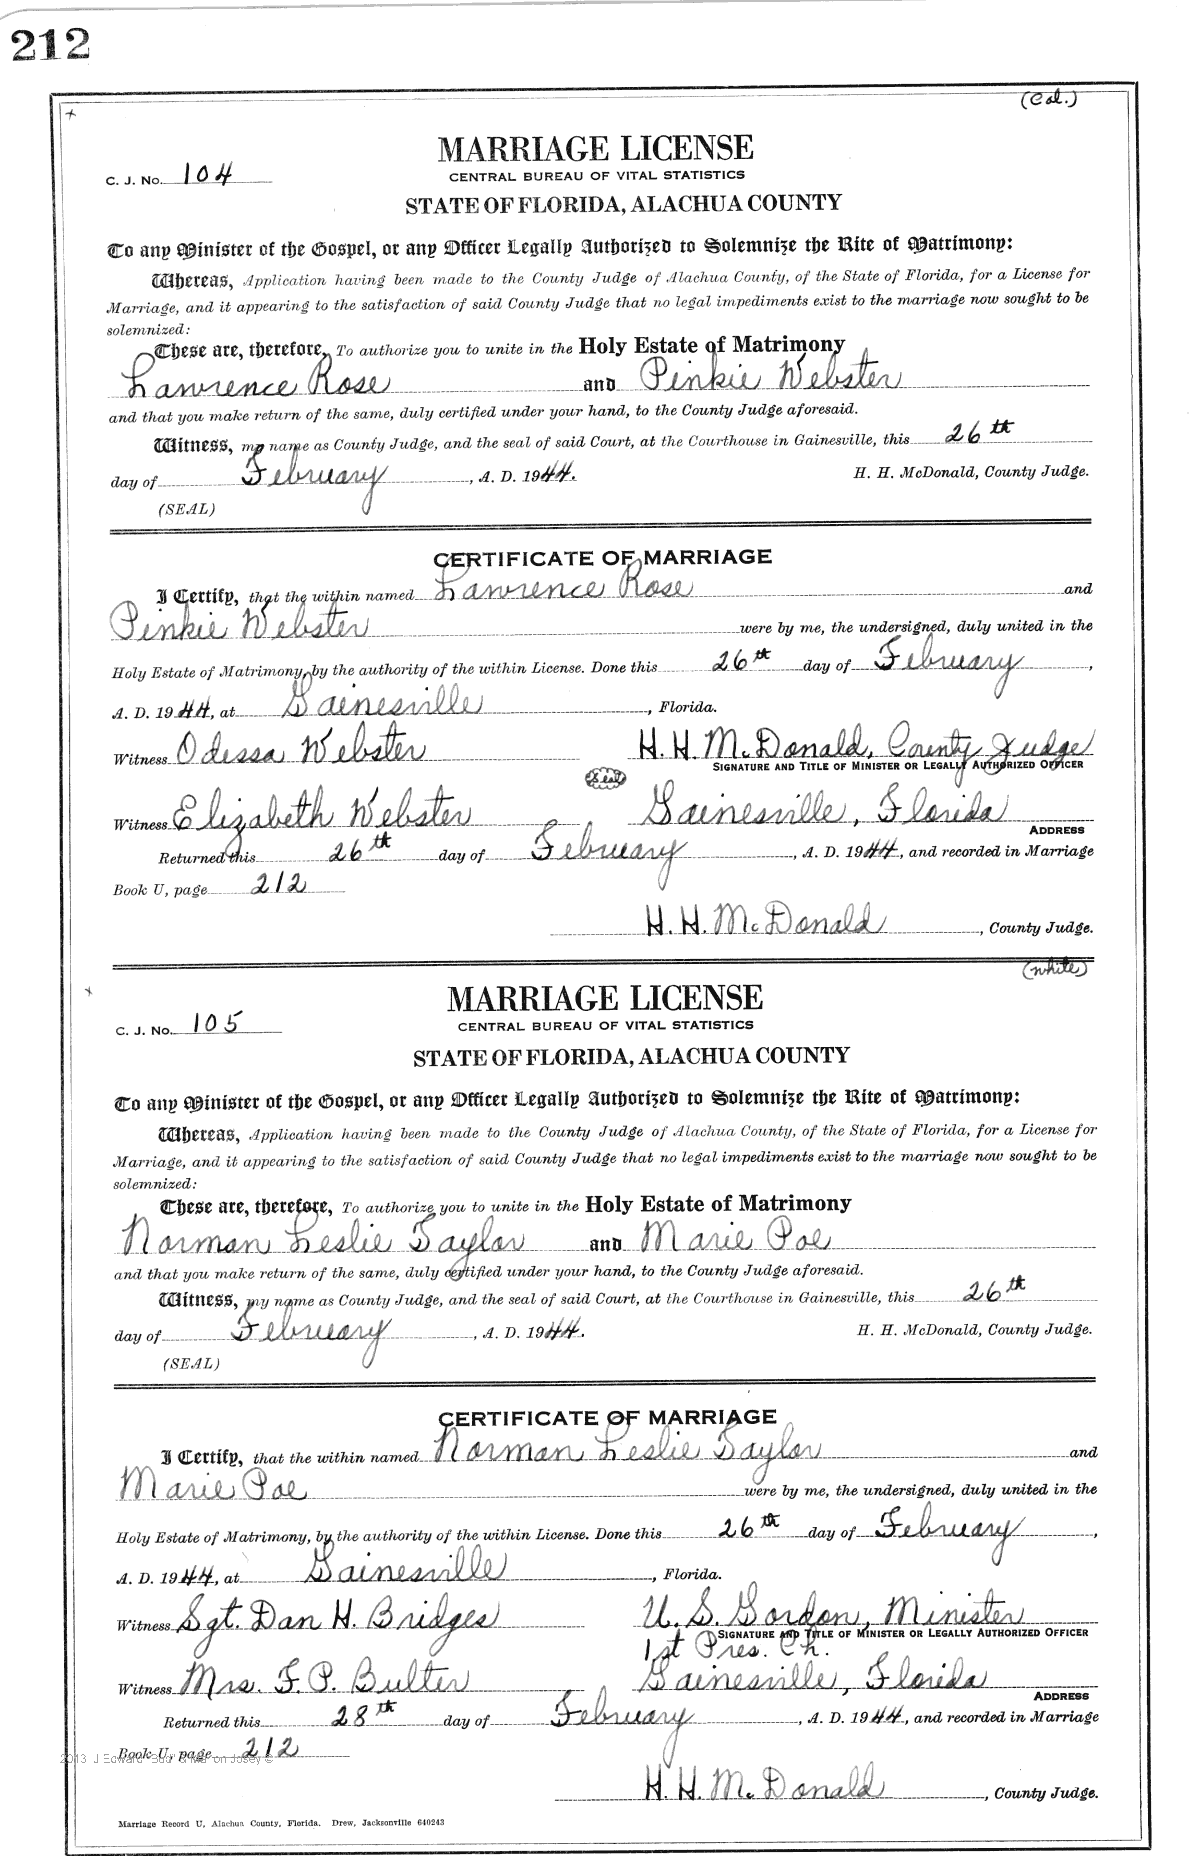 212
(Col.)
MARRIAGE LICENSE
C. J. No. 104
CENTRAL BUREAU OF VITAL STATISTICS
STATE OF FLORIDA, ALACHUA COUNTY
To any Minister of the Gospel, or any Officer Legally Authorized to Solemnize the Rite of Matrimony:
Whereas, Application having been made to the County Judge of Alachua County, of the State of Florida, for a License for
Marriage, and it appearing to the satisfaction of said County Judge that no legal impediments exist to the marriage now sought to be
solemnized:
These are, therefore, To authorize you to unite in the Holy Estate of Matrimony
Lawrence Rose and Pinkie Webster
and that you make return of the same, duly certified under your hand, to the County Judge aforesaid.
Witness, my name as County Judge, and the seal of said Court, at the Courthouse in Gainesville, this 26th
day of February, A. D. 1944. H. H. McDonald, County Judge.
(SEAL)
CERTIFICATE OF MARRIAGE
I Certify, that the within named Lawrence Rose and
Pinkie Webster were by me, the undersigned, duly united in the
Holy Estate of Matrimony, by the authority of the within License. Done this 26th day of February,
A. D. 1944, at Gainesville, Florida.
Witness Odessa Webster H. H. McDonald, County Judge
SIGNATURE AND TITLE OF MINISTER OR LEGALLY AUTHORIZED OFFICER
Seal
Witness Elizabeth Webster Gainesville, Florida
ADDRESS
Returned this 26th day of February, A. D. 1944, and recorded in Marriage
Book U, page 212
H. H. McDonald, County Judge.
(white)
MARRIAGE LICENSE
C. J. No. 105
CENTRAL BUREAU OF VITAL STATISTICS
STATE OF FLORIDA, ALACHUA COUNTY
To any Minister of the Gospel, or any Officer Legally Authorized to Solemnize the Rite of Matrimony:
Whereas, Application having been made to the County Judge of Alachua County, of the State of Florida, for a License for
Marriage, and it appearing to the satisfaction of said County Judge that no legal impediments exist to the marriage now sought to be
solemnized:
These are, therefore, To authorize you to unite in the Holy Estate of Matrimony
Norman Leslie Taylor and Marie Poe
and that you make return of the same, duly certified under your hand, to the County Judge aforesaid.
Witness, my name as County Judge, and the seal of said Court, at the Courthouse in Gainesville, this 26th
day of February, A. D. 1944. H. H. McDonald, County Judge.
(SEAL)
CERTIFICATE OF MARRIAGE
I Certify, that the within named Norman Leslie Taylor and
Marie Poe were by me, the undersigned, duly united in the
Holy Estate of Matrimony, by the authority of the within License. Done this 26th day of February,
A. D. 1944, at Gainesville, Florida.
Witness Sgt. Dan H. Bridges U. S. Gordon, Minister
SIGNATURE AND TITLE OF MINISTER OR LEGALLY AUTHORIZED OFFICER
1st Pres. Ch.
Witness Mrs. F. P. Bulter Gainesville, Florida
ADDRESS
Returned this 28th day of February, A. D. 1944, and recorded in Marriage
Book U, page 212
2013 J Edward
H. H. McDonald, County Judge.
Marriage Record U, Alachua County, Florida. Drew, Jacksonville 640243